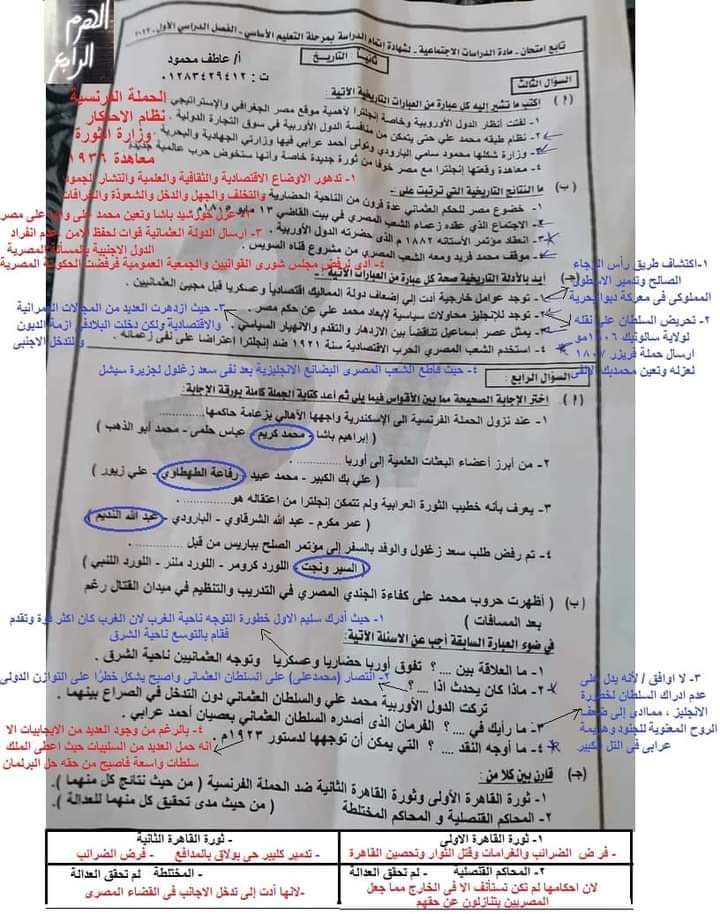 الهرم
الرابع
تابع امتحان - مادة الدراسات الاجتماعية - لشهادة إتمام الدراسة بمرحلة التعليم الأساسي - الفصل الدراسي الأول
ثانياً : التاريخ
أ/ عاطف محمود
ت : ٠١٢٨٣٤٢٩٤١٢
السؤال الثالث
( أ ) اكتب ما تشير إليه كل عبارة من العبارات التاريخية الآتية :
١- لفتت أنظار الدول الأوروبية وخاصة إنجلترا لأهمية موقع مصر الجغرافي والإستراتيجي
الحملة الفرنسية
٢- نظام طبقه محمد علي حتى يتمكن من منافسة الدول الأوربية في سوق التجارة الدولية .
نظام الاحتكار
٣- وزارة شكلها محمود سامي البارودي وتولى أحمد عرابي فيها وزارتي الجهادية والبحرية
وزارة الثورة
٤- معاهدة وقعتها إنجلترا مع مصر خوفا من ثورة جديدة خاصة وأنها ستخوض حرب عالمية جديدة
معاهدة ١٩٣٦
(ب) ما النتائج التاريخية التي ترتبت على :-
١- تدهور الاوضاع الاقتصادية والثقافية والعلمية وانتشار الجمود
والتخلف والجهل والدخل والشعوذة والخرافات
١- خضوع مصر للحكم العثماني عدة قرون من الناحية الحضارية
٢- الاجتماع الذي عقده زعماء الشعب المصري في بيت القاضي ١٣ مايو
عزل خورشيد باشا وتعين محمد على واليا على مصر
٣- انعقاد مؤتمر الأستانة ١٨٨٢ م الذى حضرته الدول الأوربية .
٣- ارسال الدولة العثمانية قوات لحفظ الامن - عدم انفراد
الدول الاجنبية بالمسألة المصرية
٤- موقف محمد فريد ومعه الشعب المصري من مشروع قناه السويس .
٤- أدى لرفض مجلس شورى القوانيين والجمعية العمومية فرفضت الحكومة المصرية
(جـ) أيد بالأدلة التاريخية صحة كل عبارة من العبارات الآتية :-
١- توجد عوامل خارجية أدت إلى إضعاف دولة المماليك اقتصادياً وعسكريا قبل مجيئ العثمانيين .
١-اكتشاف طريق رأس الرجاء
الصالح وتدمير الاسطول
المملوكى فى معركة ديو البحرية
٢- توجد للإنجليز محاولات سياسية لإبعاد محمد علي عن حكم مصر .
٢- تحريض السلطان على نقله
لولاية سالونيك ١٨٠٦مو
ارسال حملة فريزر ١٨٠٧
لعزله وتعين محمدبك الالفى
٣- يمثل عصر إسماعيل تناقضاً بين الازدهار والتقدم والانهيار السياسي .
٣- حيث ازدهرت العديد من المجالات العمرانية
والاقتصادية ولكن دخلت البلادفى ازمة الديون
والتدخل الاجنبى
٤- استخدم الشعب المصري الحرب الاقتصادية سنة ١٩٢١ ضد إنجلترا اعتراضا على نفى زعمائه .
٤- حيث قاطع الشعب المصرى البضائع الانجليزية بعد نفى سعد زغلول لجزيرة سيشل
السؤال الرابع :
( أ ) اختر الإجابة الصحيحة مما بين الأقواس فيما يلي ثم أعد كتابة الجملة كاملة بورقة الإجابة :
١- عند نزول الحملة الفرنسية الى الإسكندرية واجهها الأهالي بزعامة حاكمها............
( إبراهيم باشا - محمد كريم - عباس حلمى - محمد أبو الذهب )
٢- من أبرز أعضاء البعثات العلمية إلى أوربا ............
( علي بك الكبير - محمد عبيد - رفاعة الطهطاوي - علي زيور )
٣- يعرف بأنه خطيب الثورة العرابية ولم تتمكن إنجلترا من اعتقاله هو............
( عمر مكرم - عبد الله الشرقاوي - البارودي - عبد الله النديم )
٤- تم رفض طلب سعد زغلول والوفد بالسفر إلى مؤتمر الصلح بباريس من قبل ............
( السير ونجت - اللورد كرومر - اللورد ملنر - اللورد اللنبي )
(ب) ( أظهرت حروب محمد على كفاءة الجندي المصري في التدريب والتنظيم في ميدان القتال رغم
بعد المسافات )
في ضوء العبارة السابقة أجب عن الاسئلة الآتية:
١- حيث أدرك سليم الاول خطورة التوجه ناحية الغرب لان الغرب كان اكثر قوة وتقدم
فقام بالتوسع ناحية الشرق
١- ما العلاقة بين ....؟ تفوق أوربا حضاريا وعسكريا وتوجه العثمانيين ناحية الشرق .
٢- ماذا كان يحدث اذا ....؟
٢- انتصار (محمدعلى) على السلطان العثمانى واصبح يشكل خطرًا على التوازن الدولى
تركت الدول الأوربية محمد علي والسلطان العثماني دون التدخل في الصراع بينهما .
٣- ما رأيك في ....؟ الفرمان الذى أصدره السلطان العثماني بعصيان أحمد عرابي .
٣- لا اوافق / لأنه يدل على
عدم ادراك السلطان لخطورة
الانجليز ، مماادى إلى ضعف
الروح المعنوية للجنود وهزيمة
عرابى فى التل الكبير
٤- ما أوجه النقد ....؟ التي يمكن أن توجهها لدستور ١٩٢٣م .
٤- بالرغم من وجود العديد من الايجابيات الا
انه حمل العديد من السلبيات حيث اعطى الملك
سلطات واسعة فاصبح من حقه حل البرلمان
(جـ) قارن بين كلا من :
١- ثورة القاهرة الأولى وثورة القاهرة الثانية ضد الحملة الفرنسية ( من حيث نتائج كل منهما ).
٢- المحاكم القنصلية و المحاكم المختلطة ( من حيث مدى تحقيق كل منهما للعدالة ).
١- ثورة القاهرة الاولى
- ثورة القاهرة الثانية
- فرض الضرائب والغرامات وقتل الثوار وتحصين القاهرة
- تدمير كليبر حى بولاق بالمدافع - فرض الضرائب
٢- المحاكم القنصلية - لم تحقق العدالة
- المختلطة لم تحقق العدالة
لان احكامها لم تكن تستأنف الا فى الخارج مما جعل
المصريين يتنازلون عن حقهم
-لانها أدت إلى تدخل الاجانب فى القضاء المصرى